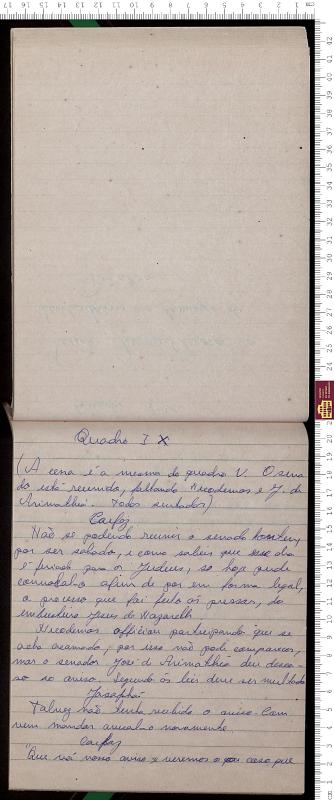 Quadro IX
(A cena é a mesma do quadro V. O sena
do está reunido, faltando Nicodemos e J. de
Arimathéa. Todos sentados)
Caifaz
Não se podendo reunir o senado hontem,
por ser sabado, e como sabeis que esse dia
é feriado para os Judeus, só hoje pude
convocal-o afim de por em forma legal,
o processo que foi feito ás pressas, do
embusteiro Jesus de Nazareth
Nicodemos officiou participando que se
acha acamado, por isso não pode comparecer,
mas o senador José de Arimathéa deu descu-
so ao aviso. Segundo as leis deve ser multado
Josaphat
Talvez não tenha recebido o aviso. Con
vem mandar avisal-o novamente
Caifaz
Que vá novo aviso e veremos o caso que